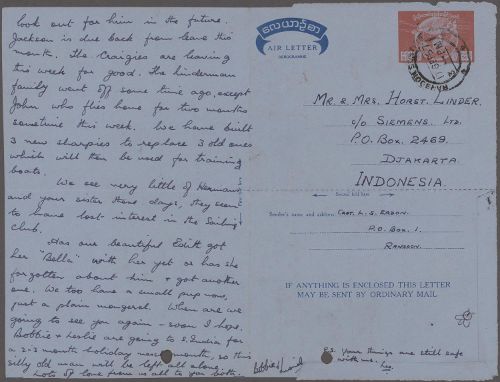 look out for him in the future.
Jackson is due back from leave this
month. The Craigies are leaving
this week for good. The Linderman
family went off some time ago, except
John who flies home for two months
sometime this week. We have built
3 new sharpies to replace 3 old ones
which will then be used for training
boats.
We see very little of Hermann
and your sister these days, they seem
to have lost interest in the Sailing
Club.
Has our beautiful Edith got
her "Bella" with her yet or has she
forgotten about him & got another
one. We too have a small pup now,
just a plain mongrel. When are we
going to see you again - soon I hope.
Bobbie & Leslie are going to S. India for
a 2-3 month holiday next month, so this
silly old man will be left all alone.
Lots of love from us all to you both.
လေယာဉ်စာ
AIR LETTER
AEROGRAMME
MR. & MRS. HORST. LINDER.
C/O SIEMENS. LTD.
P.O. BOX. 2469.
DJAKARTA.
INDONESIA.
Second fold here
Sender's name and address: CAPT. L. S. ERSON.
P.O. BOX. 1.
RANGOON.
IF ANYTHING IS ENCLOSED THIS LETTER
MAY BE SENT BY ORDINARY MAIL
P.S. Your things are still safe
with us.
Leo.